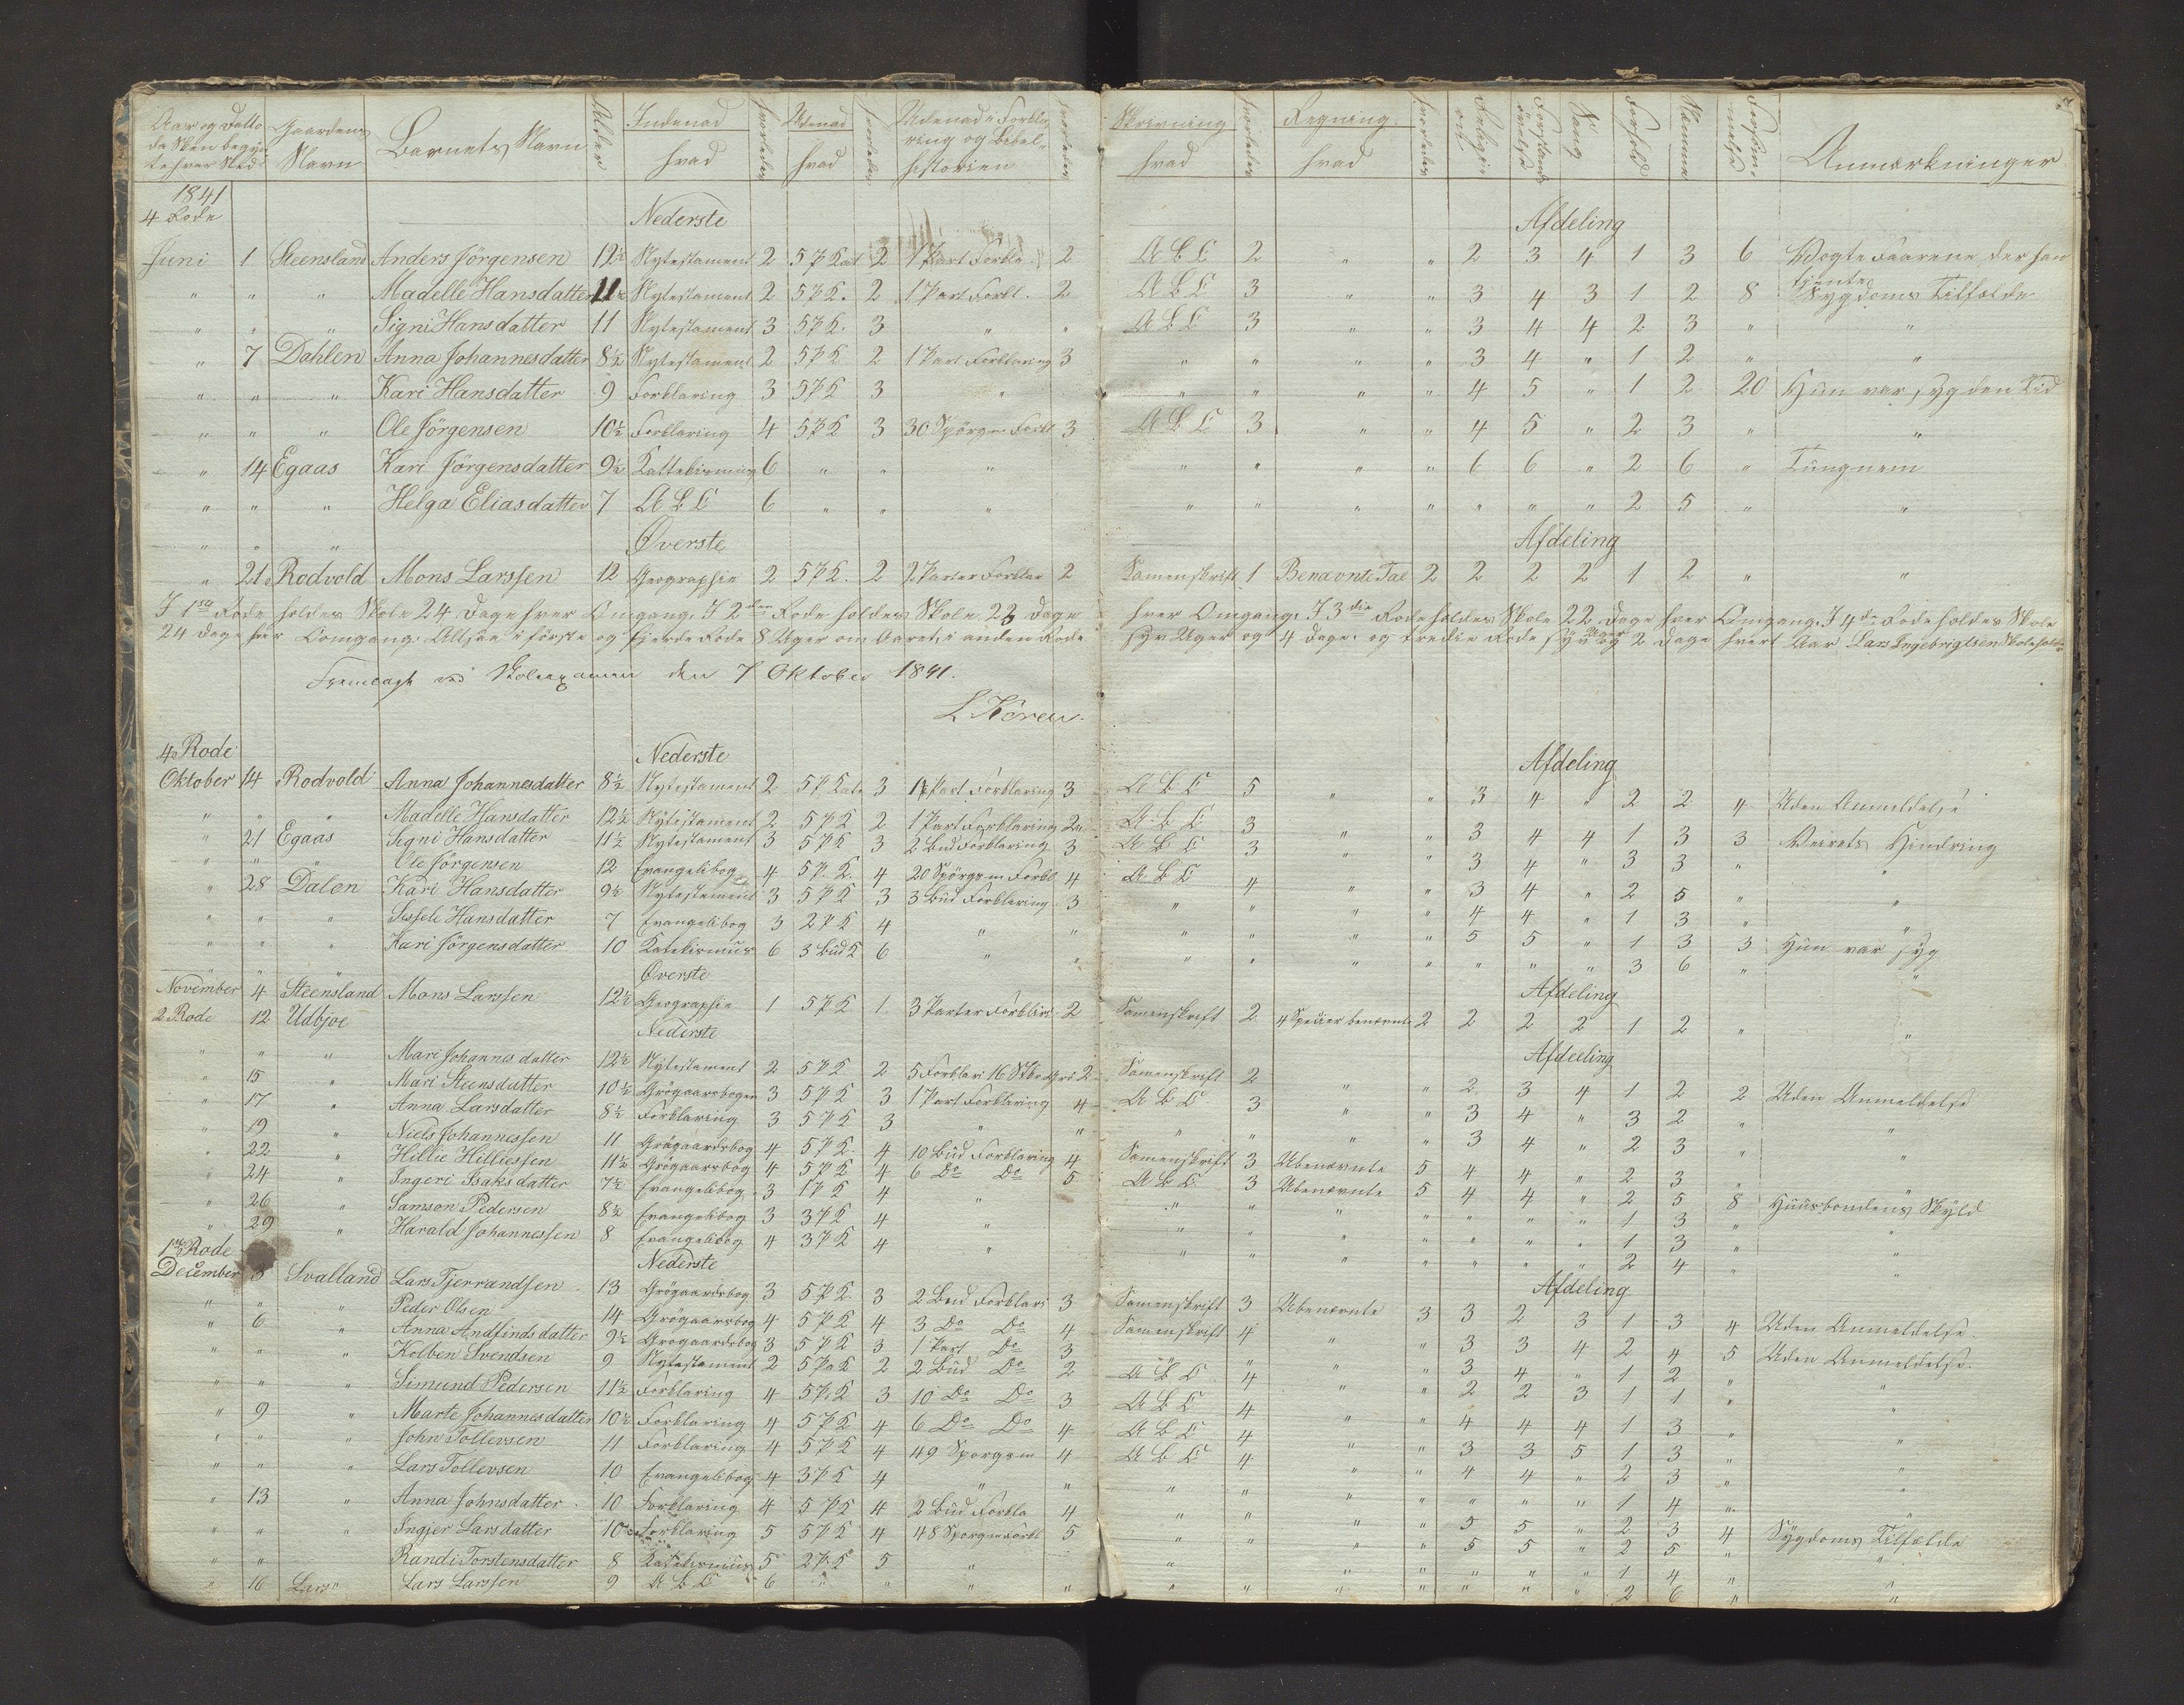 Aar og Datto da Skolen begyntes hver Sted | Gaardens Navn | Barnets Navn | Alder | Indenad hvad | hvorledes | Udenad hvad | hvorledes | Udenad i Forklaring og Bibelhistorien | hvorledes | Skrivning hvad | hvorledes | Regning hvad | hvorledes | Religion | Forstandsøvelse | Sang | Forhold | Nemme | Forsømmelse | Anmærkninger
1841
4 Rode Nederste Afdeling
Juni 1 Steensland Anders Jörgensen 12½ Nytestament 2 5 P Kat 2 1 Part Forkla 2 ABC 2 " " 2 3 4 1 3 6 Vogte Faarene der han tjente
" " " Madelle Hansdatter 11½ Nytestament 2 5 P K. 2 1 Part Forkl. 2 ABC 3 " " 3 4 3 1 2 8 Sygdoms Tilfælde
" " " Signi Hansdatter 11 Nytestament 3 5 P K. 3 " " ABC 3 " " 3 4 4 2 3 " "
" 7 Dahlen Anna Johannesdatter 8½ Nytestament 2 5 P K 2 1 Part Forklaring 3 " " " " 3 4 " 1 2 " "
" " " Kari Hansdatter 9 Forklaring 3 5 P K 3 " " " " " 4 5 " 1 2 20 Hun var syg den Tid
" " " Ole Jörgensen 10½ Forklaring 4 5 P K 3 30 Spörgm Forkl 3 ABC 3 " " 4 5 " 2 3 " "
" 14 Egaas Kari Jörgensdatter 9½ Kattekismus 6 " " " " " " " 6 6 " 2 6 " Tungnem
" " " Helga Eliasdatter 7 ABC 6 " " " " " " " " " " 2 5 " "
" " " Øverste Afdeling
" 21 Rodvold Mons Larssen 12 Geographie 2 5 P K. 2 2 Parter Forklar 2 Samenskrift 1 Benævnte Tal 2 2 2 2 1 2 " "
I 1ste Rode holdes Skole 24 Dage hver Omgang. I 2den Rode holdes Skole 23 Dage hver Omgang. I 3die Rode holdes Skole 22 Dage hver Omgang. I 4de Rode holdes Skole
24 Dage hver Omgang. Altsaa i förste og fjerde Rode 8 Uger om Aaret, i anden Rode syv Uger og 4 Dage og tredie Rode syv Uger og 2 Dage hvert Aar. Lars Ingebrigtsen Skoleholder
Fremlagt ved Skoleexamen den 7 Oktober 1841.
L Koren.
4 Rode Nederste Afdeling
Oktober 14 Rodvold Anna Johannesdatter 8½ Nytestament 2 5 P Kate 3 1 Part Forklaring 3 ABC 5 " " 3 4 " 2 2 4 Uden Anmeldelse
" " " Madelle Hansdatter 12½ Nytestament 2 5 P K 2 1 Part Forklaring 2 ABC 3 " " 3 4 4 1 3 3 Veirets Hindring
" 21 Egaas Signi Hansdatter 11½ Nytestament 3 5 P K 3 2 Bud Forklaring 3 ABC 3 " " 3 4 " 3 3 " "
" " " Ole Jörgensen 12 Evangelibog 4 5 P. K. 4 20 Spörgsm Forkl 4 ABC 4 " " 3 4 " 2 5 " "
" 28 Dalen Kari Hansdatter 9½ Nytestament 3 5 P K 3 3 Bud Forklaring 3 " " " " 4 4 " 1 3 " "
" " " Sissele Hansdatter 7 Evangelibog 3 2 P K 4 " " " " " " 5 5 " 1 3 3 Hun var syg
" " " Kari Jörgensdatter 10 Katekismus 6 3 Bud K 6 " " " " " " " " " 3 6 " "
" " " Øverste Afdeling
November 4 Steensland Mons Larssen 12½ Geographie 1 5 P K 1 3 Parter Forklari 2 Samenskrift 2 4 Specier benævnte 2 2 2 2 1 2 " "
2 Rode 12 Udbjoe Nederste Afdeeling
" " " Mari Johannesdatter 12½ Nytestament 2 5 P K 2 5 Forklari 16 2 Samenskrift 2 " " 2 3 4 1 2 2 Uden Anmeldelse
" 15 " Mari Steensdatter 10½ Grögaardsbogen 3 5 P K 3 1 Part Forklaring 4 ABC 3 " " 3 4 " 3 2 " "
" 17 " Anna Larsdatter 8½ Forklaring 3 5 P K 3 " " " " " " 3 4 " 2 3 " "
" 19 " Niels Johannessen 11 Grögaardsbog 4 5 P K. 4 10 Bud Forklaring 4 Samenskrift 3 Ubenævnte 5 4 4 " 2 3 " "
" 22 " Hillie Hilliessen 11½ Grögaarsbog 4 5 P K 4 6 Do Do 5 ABC 3 Ubenævnte 5 4 4 " 2 5 8 Huusbondens Skyld
" 24 " Ingeri Isaksdatter 7½ Evangelibog 3 1 P K 4 " " " " " " " " 1 3 " "
" 26 " Samson Pedersen 8½ Evangelibog 3 3 P K 4 " " " " " " " " 1 3 " "
" 29 " Harald Johannessen 8 Evangelibog 4 3 P K 4 " " " " " " " " 2 4 " "
1ste Rode Nederste Afdeling
December 3 Svalland Lars Tjerrandsen 13 Grögaardsbog 3 5 P K 3 2 Bud Forklari 3 Samenskrift 3 Ubenævnte 3 3 2 3 1 3 4 Uden Anmeldelse.
" " " Peder Olsen 14 Grögaarsbog 4 5 P K 4 3 Do Do 4 Samenskrift 4 " " 3 3 4 2 4 5 Uden Anmeldelse.
" 6 " Anna Andfindsdatter 9½ Grögaardsbog 3 5 P K 3 1 Part Do 3 " " " " 3 4 " 1 2 " "
" " " Kolben Svendsen 9 Nytestament 2 5 Pa K 2 2 Bud Do 2 ABC 4 " " 2 2 3 1 1 " "
" " " Simund Pedersen 11½ Forklaring 4 5 P. K 3 10 Do Do 3 ABC 4 " " 4 4 4 1 3 " "
" 9 " Marte Johannesdatter 10½ Forklaring 4 5 P K 4 6 Do Do 4 ABC 4 " " 3 3 5 1 3 " "
" " " John Tollevsen 11 Forklaring 4 5 P K 4 49 Sporgsm 4 ABC 4 " " 4 4 " 2 3 " "
" " " Lars Tollevsen 10 Evangelibog 4 3 P K 4 " " " " " " " " " 1 4 " "
" 13 " Anna Johnsdatter 10 Forklaring 4 5 P K 4 2 Bud Forkla 4 " " " " 5 5 " 2 3 4 Sygdoms Tilfælde
" " " Ingjer Larsdatter 10½ Forklaring 5 5 P K 4 48 Sporgm Forkl 5 " " " " 5 5 " 2 5 " "
" " " Randi Torstensdatter 8 Katekismus 5 2 P. K 5 " " " " " " " 1 4 " "
" 16 Lars" Lars Larssen 9 ABC 6 " " " " " " " " " " " 2 6 " "